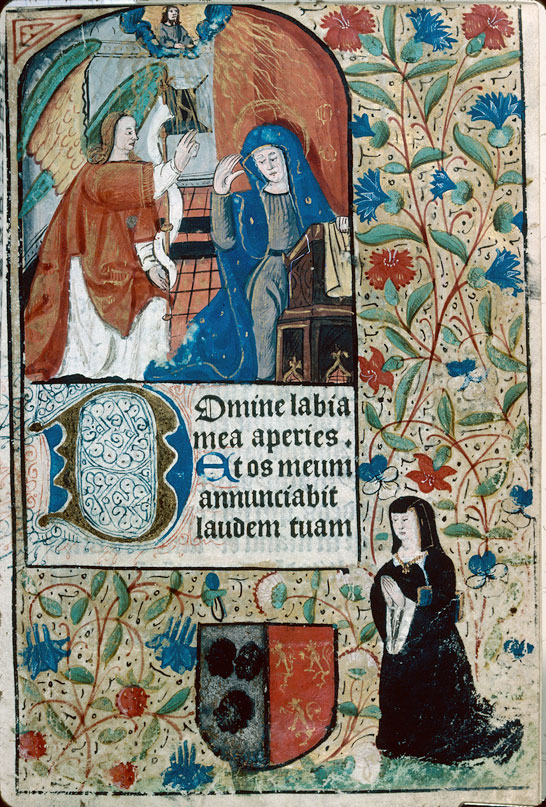 Domine labia
mea aperies.
Et os meum
annunciabit
laudem tuam